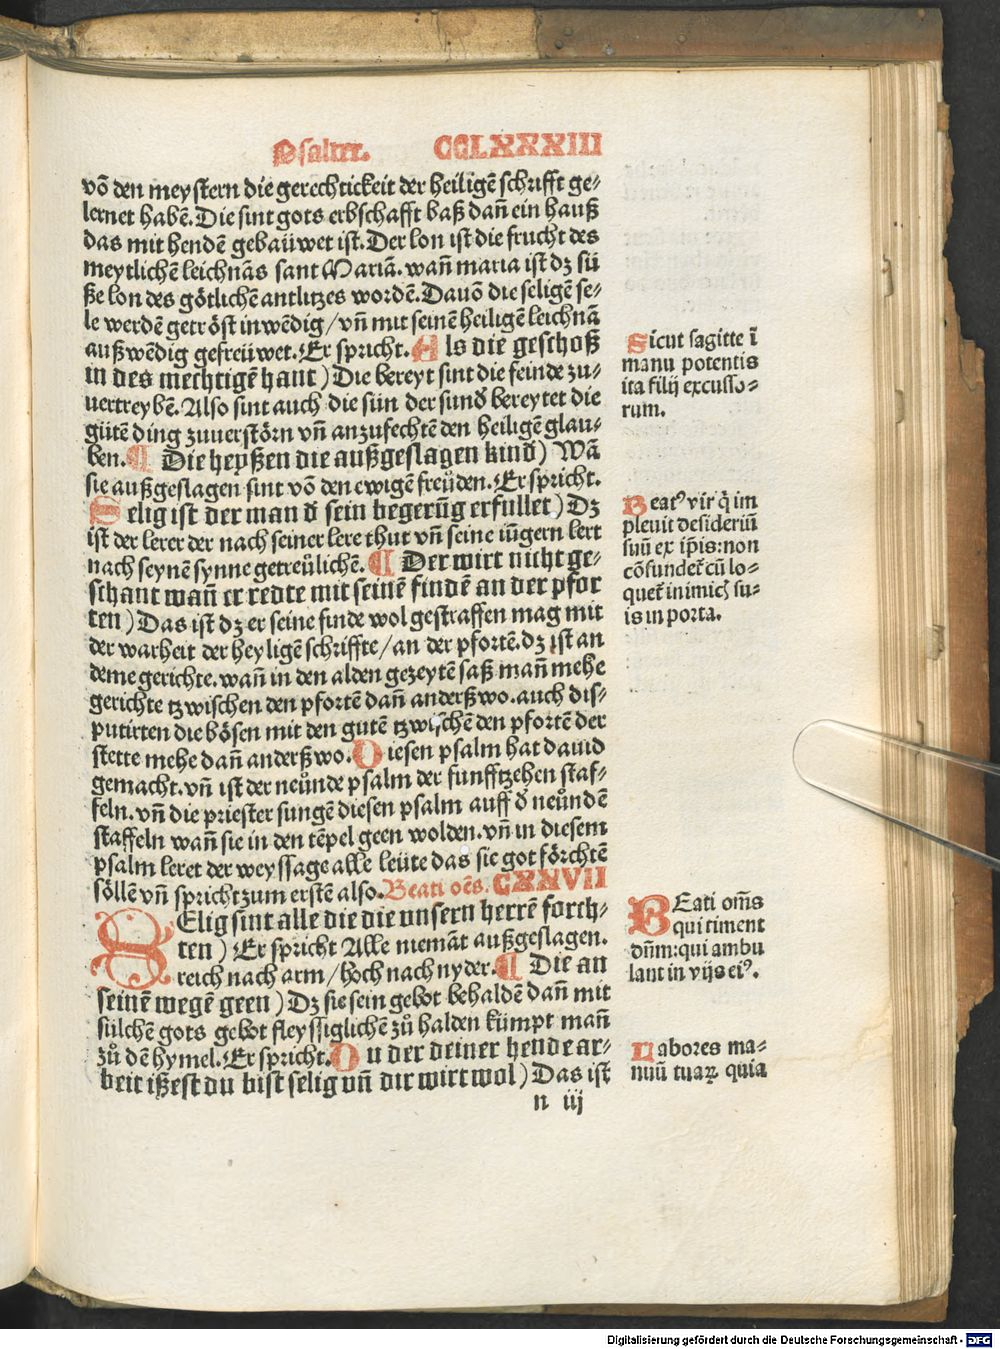 Psalter. CCLXXXIII
võ den meystern die gerechtickeit der heiligẽ schrifft ge-
lernet habẽ. Die sint gots erbschafft baß dañ ein hauß
das mit hendẽ gebaüwet ist. Der lon ist die frucht des
meytlichẽ leichnãs sant Mariã. wañ maria ist dz sü
ße lon des götlichẽ antlitzes wordẽ. Dauõ die seligẽ se-
le werdẽ getröst inwẽdig / vñ mit seinẽ heiligẽ leichnã
außwẽdig gefreüwet. Er spricht. Als die geschoß
in des mechtigẽ hant) Die bereyt sint die feinde zu-
uertreybẽ. Also sint auch die sün der sund̛ bereytet die
gütẽ ding zuuerstörn vñ anzufechtẽ den heiligẽ glau-
ben. ¶ Die heyßen die außgeslagen kind̛) Wã
sie außgeslagen sint võ den ewigẽ freüden. Er spricht.
Selig ist der man d̛ sein begerũg erfullet) Dz
ist der lerer der nach seiner lere thut vñ seine iũgern lert
nach seynẽ synne getreülichẽ. ¶ Der wirt nicht ge-
schant wañ er redte mit seinẽ findẽ an der pfor
ten) Das ist dz er seine finde wol gestraffen mag mit
der warheit der heyligẽ schriffte / an der pfortẽ. dz ist an
deme gerichte. wañ in den alden gezeytẽ saß mañ mehe
gerichte tzwischen den pfortẽ dañ anderßwo. auch dis-
putirten die bösen mit den gutẽ tzwischẽ den pfortẽ der
stette mehe dañ anderßwo. Diesen psalm hat dauid
gemacht. vñ ist der neůnde psalm der funfftzehen staf-
feln. vñ die priester sungẽ diesen psalm auff d̛ neůndẽ
staffeln wañ sie in den tẽpel geen wolden. vñ in diesem
psalm leret der weyssage alle leüte das sie got förchtẽ
söllẽ vñ spricht zum ersten also. Beati oẽs. CXXVII
SElig sint alle die die unsern herrẽ forch-
ten) Er spricht Alle niemãt außgeslagen.
reich nach arm / hoch nach nyder. ¶ Die an
seinẽ wegẽ geen) Dz sie sein gebot behaldẽ dañ mit
sülchẽ gots gebot fleyssiglichẽ zů halden kümpt mañ
zů dẽ hymel. Er spricht. Du der deiner hende ar-
beit ißest du bist selig vñ dir wirt wol) Das ist
n iij
Sicut sagitte ĩ
manu potentis
ita filij excusso-
rum.
Beatꝰ vir q̃ im
pleuit desideriũ
suũ ex ip̃is: non
cõfundet᷑ cũ lo-
quet᷑ inimicꝭ su-
is in porta.
BEati om̃s
qui timent
dñm: qui ambu
lant in vijs eiꝰ.
Labores ma-
nuũ tuaꝝ quia
Digitalisierung gefördert durch die Deutsche Forschungsgemeinschaft - DFG